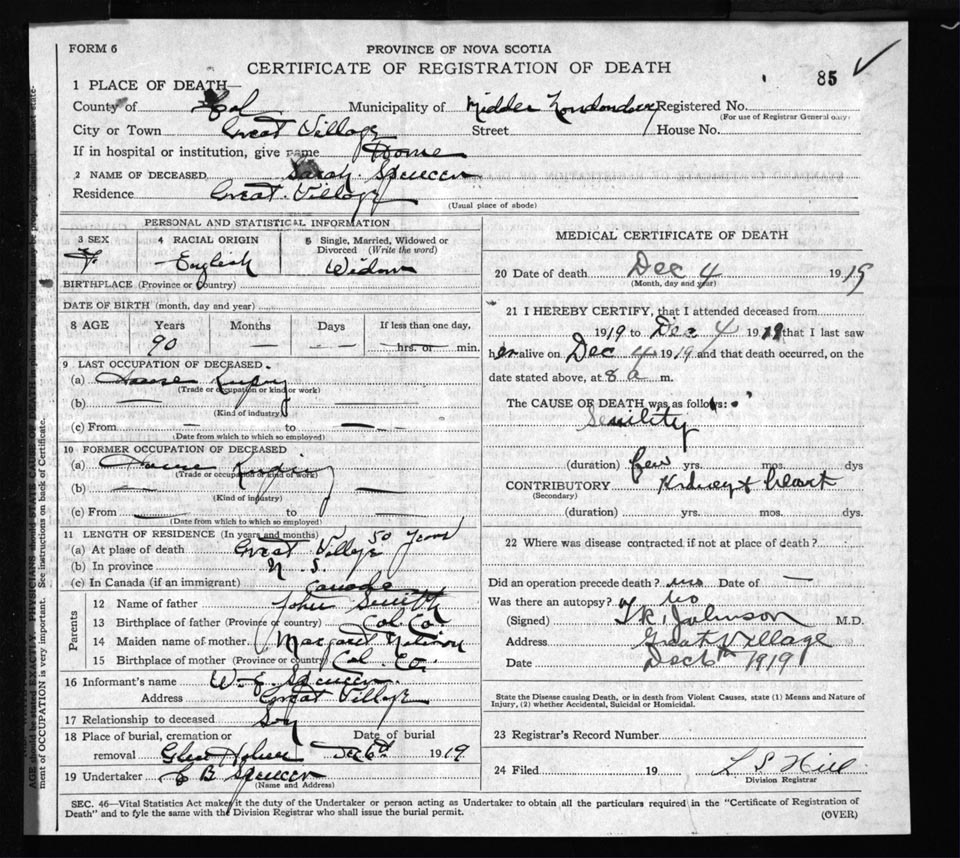 FORM 6
PROVINCE OF NOVA SCOTIA
CERTIFICATE OF REGISTRATION OF DEATH
85
1 PLACE OF DEATH—
County of Col Municipality of Registered No.
(For use of Registrar General only)
City or Town Great Village Street House No.
If in hospital or institution, give name Home
2 NAME OF DECEASED Sarah Spencer
Residence Great Village
(Usual place of abode)
PERSONAL AND STATISTICAL INFORMATION
3 SEX
F.
4 RACIAL ORIGIN
English
5 Single, Married, Widowed or Divorced (Write the word)
Widow
BIRTHPLACE (Province or Country)
DATE OF BIRTH (month, day and year)
8 AGE Years Months Days If less than one day,
90 — — — hrs. or min.
9 LAST OCCUPATION OF DECEASED
(a) House
(Trade or occupation or kind of work)
(b) —
(Kind of industry)
(c) From — to —
(Date from which to which so employed)
10 FORMER OCCUPATION OF DECEASED
(a) House
(Trade or occupation or kind of work)
(b) —
(Kind of industry)
(c) From — to —
(Date from which to which so employed)
11 LENGTH OF RESIDENCE (In years and months)
(a) At plase of death Great Village 50 years
(b) In province N. S.
(c) In Canada (if an immigrant) Canada
Parents
12 Name of father John Smith
13 Birthplace of father (Province or country) Col. Co.
14 Maiden name of mother Margaret
15 Birthplace of mother (Province or country) Col. Co.
16 Informant's name W. E. Spencer
Address Great Village
17 Relationship to deceased Son
18 Place of burial, cremation or Date of burial
removal Dec 6th 1919
19 Undertaker E B Spencer
(Name and Address)
MEDICAL CERTIFICATE OF DEATH
20 Date of death Dec 4 1919
(Month, day and year)
21 I HEREBY CERTIFY, that I attended deceased from
1919 to Dec 4 1919 that I last saw
her alive on Dec 4 1919 and that death occurred, on the
date stated above, at 8 a m.
The CAUSE OF DEATH was as follows:
Senility
(duration) few yrs. mos. dys
CONTRIBUTORY Kidney & heart
(Secondary)
(duration) yrs. mos. dys.
22 Where was disease contracted if not at place of death?
Did an operation precede death? no Date of —
Was there an autopsy? no
(Signed) T. R. Johnson M.D.
Address Great Village
Date Dec 6th 1919
State the Disease causing Death, or in death from Violent Causes, state (1) Means and Nature of
Injury, (2) whether Accidental, Suicidal or Homicidal.
23 Registrar's Record Number
24 Filed 19 L S Hill
Division Registrar
SEC. 46—Vital Statistics Act makes it the duty of the Undertaker or person acting as Undertaker to obtain all the particulars required in the "Certificate of Registration of
Death" and to fyle the same with the Division Registrar who shall issue the burial permit.
(OVER)
ment of OCCUPATION is very important. See instructions on back of Certificate.